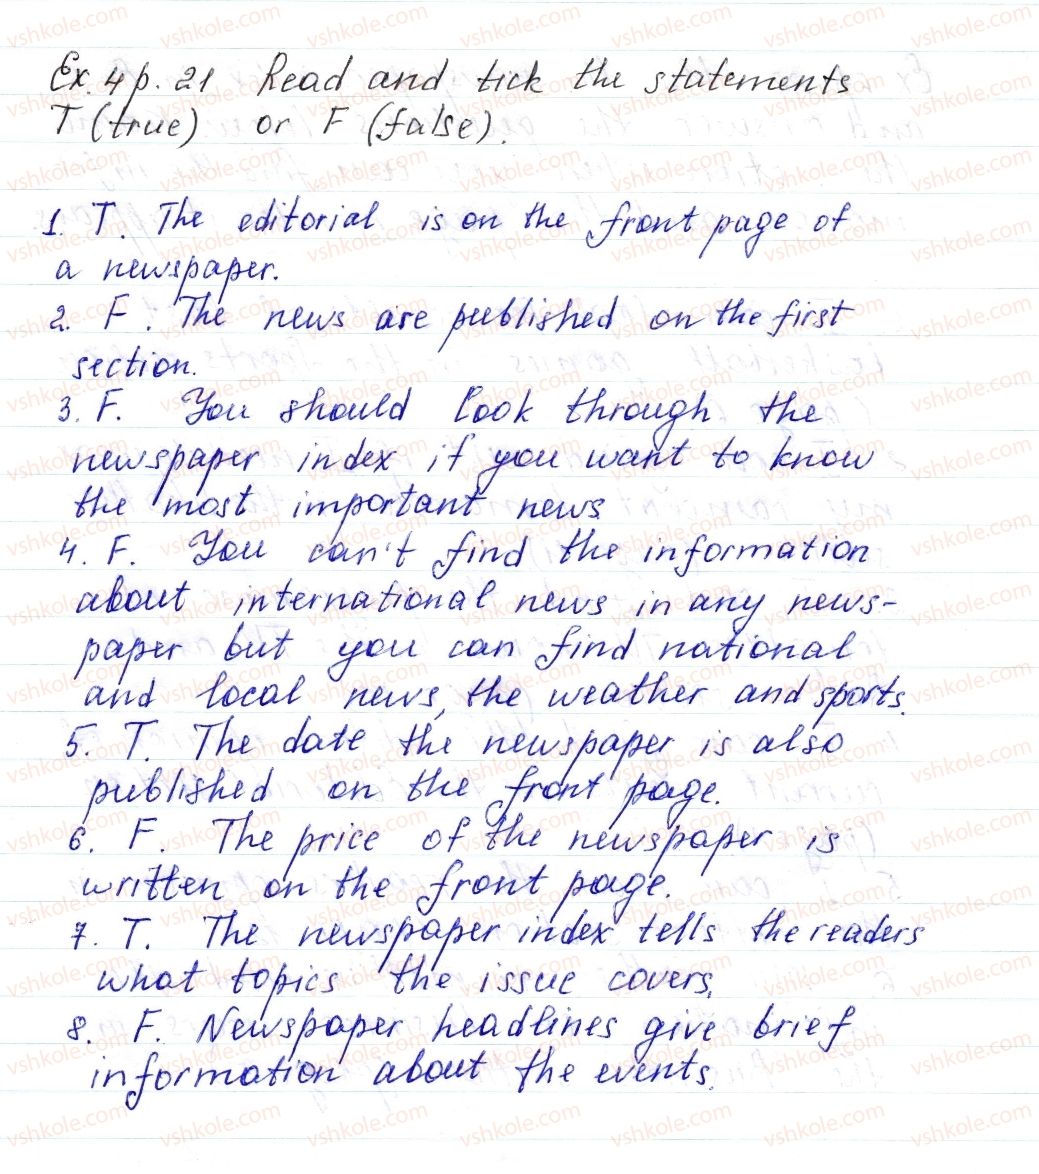 Ex. 4 p. 21 Read and tick the statements
T (true) or F (false).
1. T. The editorial is on the front page of
a newspaper.
2. F. The news are published on the first
section.
3. F. You should look through the
newspaper index if you want to know
the most important news
4. F. You can't find the information
about international news in any news-
paper but you can find national
and local news, the weather and sports.
5. T. The date the newspaper is also
published on the front page.
6. F. The price of the newspaper is
written on the front page.
7. T. The newspaper index tells the readers
what topics the issue covers.
8. F. Newspaper headlines give brief
information about the events.
vshkole.com